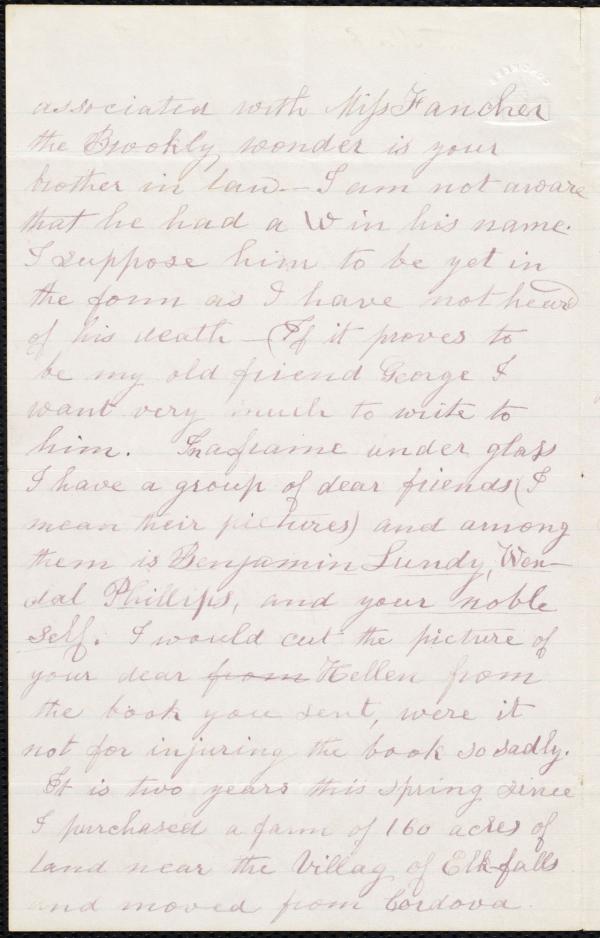 associated with Miss Fancher
the Brookly wonder is your
brother in law.— I am not aware
that he had a W in his name.
I suppose him to be yet in
the form as I have not heard
of his death — (If it proves to
be my old friend George I
want very much to write to
him. In a frame under glass
I have a group of dear friends (I
mean their pictures) and among
them is Benjamin Lundy, Wen-
dal Phillips, and your noble
self. I would cut the picture of
your dear from Hellen from
the book you sent, were it
not for injuring the book so sadly.
It is two years this spring since
I purchased a farm of 160 acres of
land near the Villag of Elk-falls
and moved from Cordova.